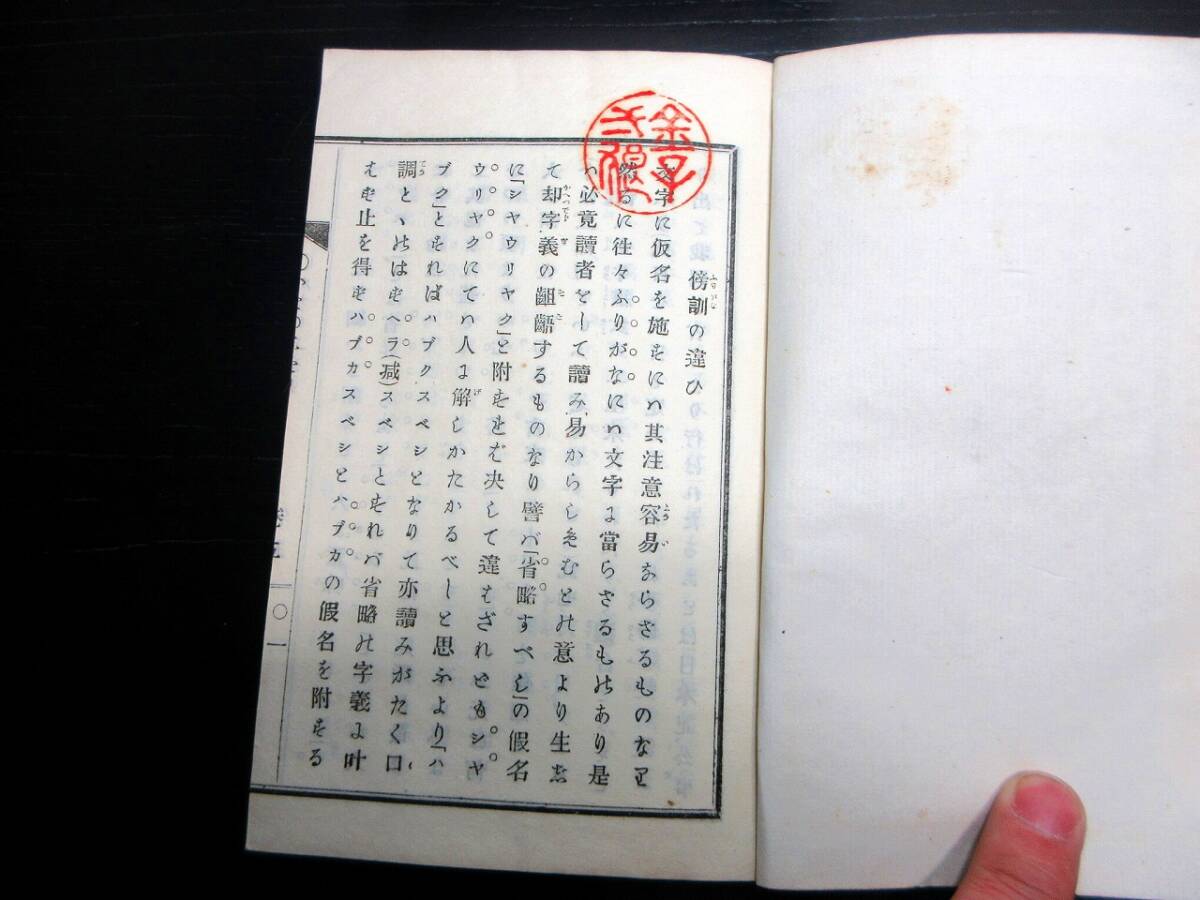 傍訓の違ひ
文字に仮名を施すにハ其注意容易ならざるものなり
然るに往々ふりがなにハ文字に當らさるものあり是
ハ必竟讀者をして讀み易からしめむとの意より生し
て却字義の齟齬するものなり譬バ「省略すべし」の假名
に「シヤウリヤク」と附すをば决して違はざれどもシヤ
ウリヤクにてハ人に解しかたかるべしと思ふより「ハ
ブク」とすればハブクスベシとなりて亦讀みがたく口
調とゝのはずヘラ(減)スベシとすれバ省略の字義に叶
はず止を得ずハブカスベシとハブカの假名を附する